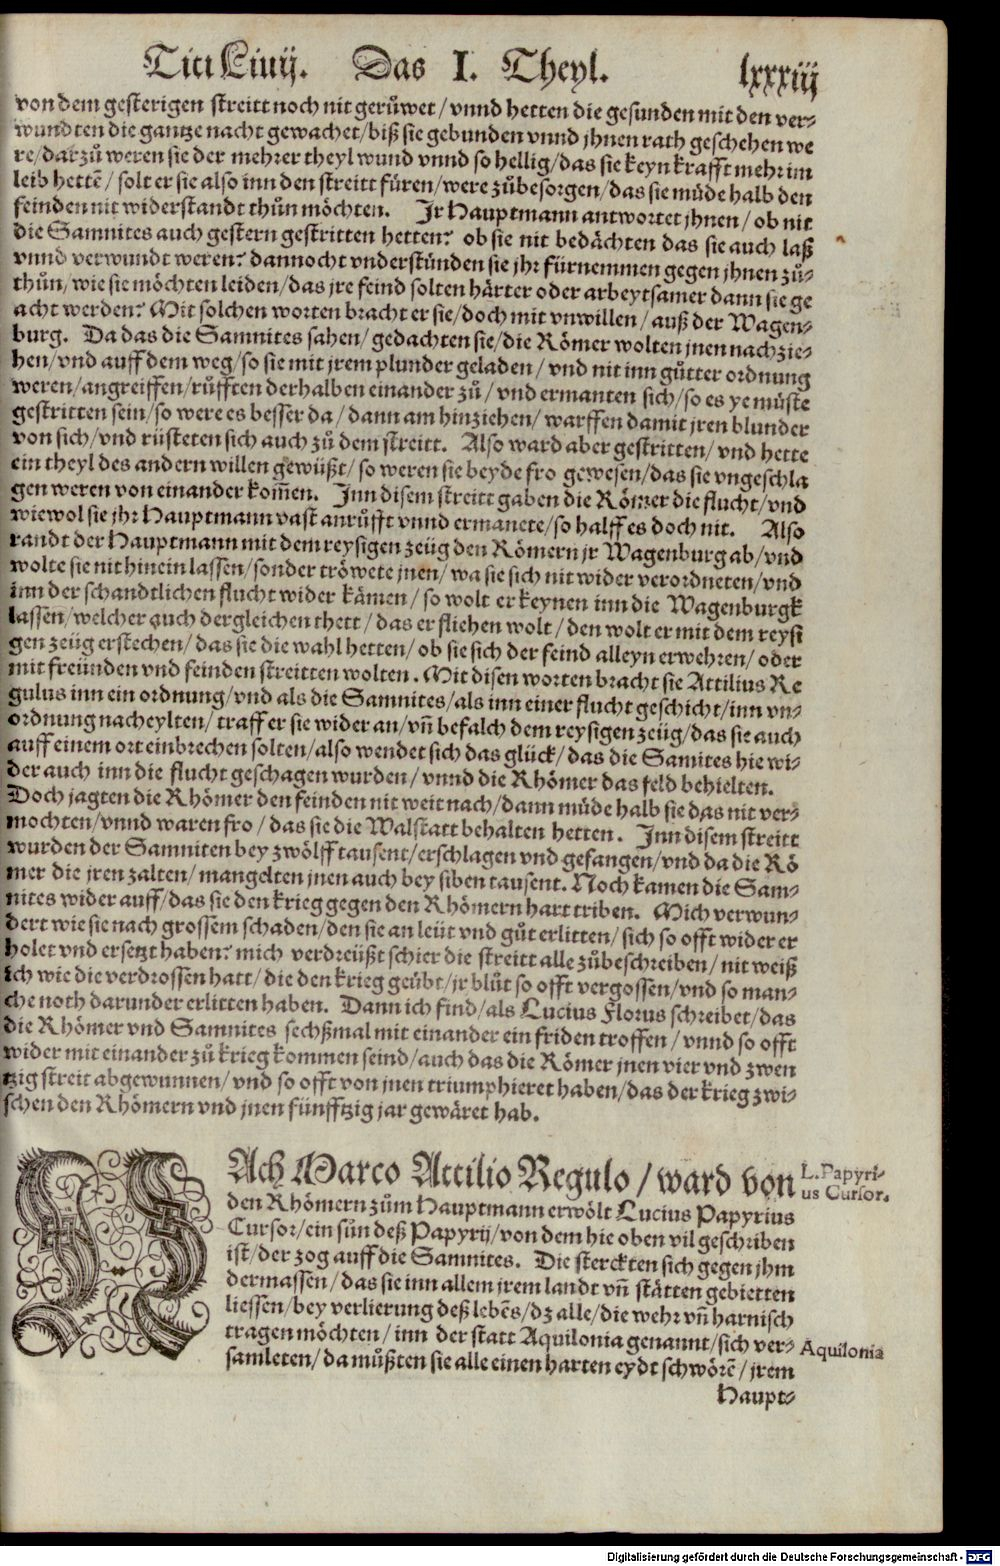 Titi Liuij. Das I. Theyl. lxxxiij
von dem gesterigen streitt noch nit gerůwet / vnnd hetten die gesunden mit den ver-
wundten die gantze nacht gewachet / biß sie gebunden vnnd jhnen rath geschehen we
re / darzů weren sie der mehrer theyl wund vnnd so hellig / das sie keyn krafft mehr im
leib hettē / solt er sie also inn den streitt füren / were zůbesorgen / das sie müde halb den
feinden nit widerstandt thůn möchten. Jr Hauptmann antwortet jhnen / ob nit
die Samnites auch gestern gestritten hetten? ob sie nit bedächten das sie auch laß
vnnd verwundt weren? dannocht vnderstünden sie jhr fürnemmen gegen jhnen zů-
thůn / wie sie möchten leiden / das jre feind solten härter oder arbeytsamer dann sie ge
acht werden? Mit solchen worten bracht er sie / doch mit vnwillen / auß der Wagen-
burg. Da das die Samnites sahen / gedachten sie / die Römer wolten jnen nachzie-
hen / vnd auff dem weg / so sie mit jrem plunder geladen / vnd nit inn gůtter ordnung
weren / angreiffen / růfften derhalben einander zů / vnd ermanten sich / so es ye müste
gestritten sein / so were es besser da / dann am hinziehen / warffen damit jren blunder
von sich / vnd rüsteten sich auch zů dem streitt. Also ward aber gestritten / vnd hette
ein theyl des andern willen gewüßt / so weren sie beyde fro gewesen / das sie vngeschla
gen weren von einander kom̄en. Jnn disem streitt gaben die Römer die flucht / vnd
wiewol sie jhr Hauptmann vast anrůfft vnnd ermanete / so halff es doch nit. Also
randt der Hauptmann mit dem reysigen zeüg den Römern jr Wagenburg ab / vnd
wolte sie nit hinein lassen / sonder tröwete jnen / wa sie sich nit wider verordneten / vnd
inn der schandtlichen flucht wider kämen / so wolt er keynen inn die Wagenburgk
lassen / welcher auch dergleichen thett / das er fliehen wolt / den wolt er mit dem reysi
gen zeüg erstechen / das sie die wahl hetten / ob sie sich der feind alleyn erwehren / oder
mit freünden vnd feinden streitten wolten. Mit disen worten bracht sie Attilius Re
gulus inn ein ordnung / vnd als die Samnites / als inn einer flucht geschicht / inn vn-
ordnung nacheylten / traff er sie wider an / vn̄ befalch dem reysigen zeüg / das sie auch
auff einem ort einbrechen solten / also wendet sich das glück / das die Samites hie wi-
der auch inn die flucht geschagen wurden / vnnd die Rhömer das feld behielten.
Doch jagten die Rhömer den feinden nit weit nach / dann müde halb sie das nit ver-
mochten / vnnd waren fro / das sie die Walstatt behalten hetten. Jnn disem streitt
wurden der Samniten bey zwölff tausent / erschlagen vnd gefangen / vnd da die Rö
mer die jren zalten / mangelten jnen auch bey siben tausent. Noch kamen die Sam-
nites wider auff / das sie den krieg gegen den Rhömern hart triben. Mich verwun-
dert wie sie nach grossem schaden / den sie an leüt vnd gůt erlitten / sich so offt wider er
holet vnd ersetzt haben? mich verdreüßt schier die streitt alle zůbeschreiben / nit weiß
ich wie die verdrossen hatt / die den krieg geübt / jr blůt so offt vergossen / vnd so man-
che noth darunder erlitten haben. Dann ich find / als Lucius Florus schreibet / das
die Rhömer vnd Samnites sechßmal mit einander ein friden troffen / vnnd so offt
wider mit einander zů krieg kommen seind / auch das die Römer jnen vier vnd zwen
tzig streit abgewunnen / vnd so offt von jnen triumphieret haben / das der krieg zwi-
schen den Rhömern vnd jnen fünfftzig jar gewäret hab.
NAch Marco Attilio Regulo / ward von
den Rhömern zům Hauptmann erwölt Lucius Papyrius
Cursor / ein sün deß Papyrij / von dem hie oben vil geschriben
ist / der zog auff die Samnites. Die sterckten sich gegen jhm
dermassen / das sie inn allem jrem landt vn̄ stätten gebietten
liessen / bey verlierung deß lebēs / dz alle / die wehr vn̄ harnisch
tragen möchten / inn der statt Aquilonia genannt / sich ver-
samleten / da můßten sie alle einen harten eydt schwörē / jrem
Haupt-
L. Papyri-
us Cursor.
Aquilonia
Digitalisierung gefördert durch die Deutsche Forschungsgemeinschaft - DFG